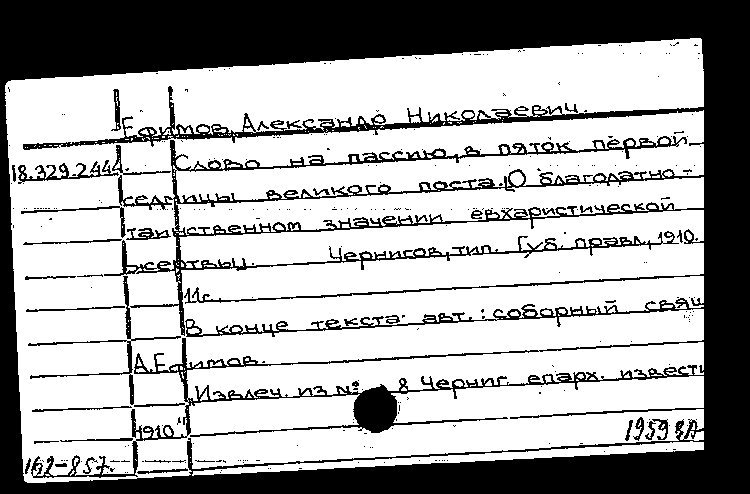 Ефимов, Александр Николаевич.
18.329.2444. Слово на пассию, в пяток первой
седмицы великого поста. [О благодатно-
таинственном значении евхаристической
жертвы]. Чернигов, тип. Губ. правл., 1910.
11с.
В конце текста авт.: соборный свящ
А.Ефимов.
"Извлеч. из № 8 Черниг. епарх. извести
1910."
1959 ВА
162-857.